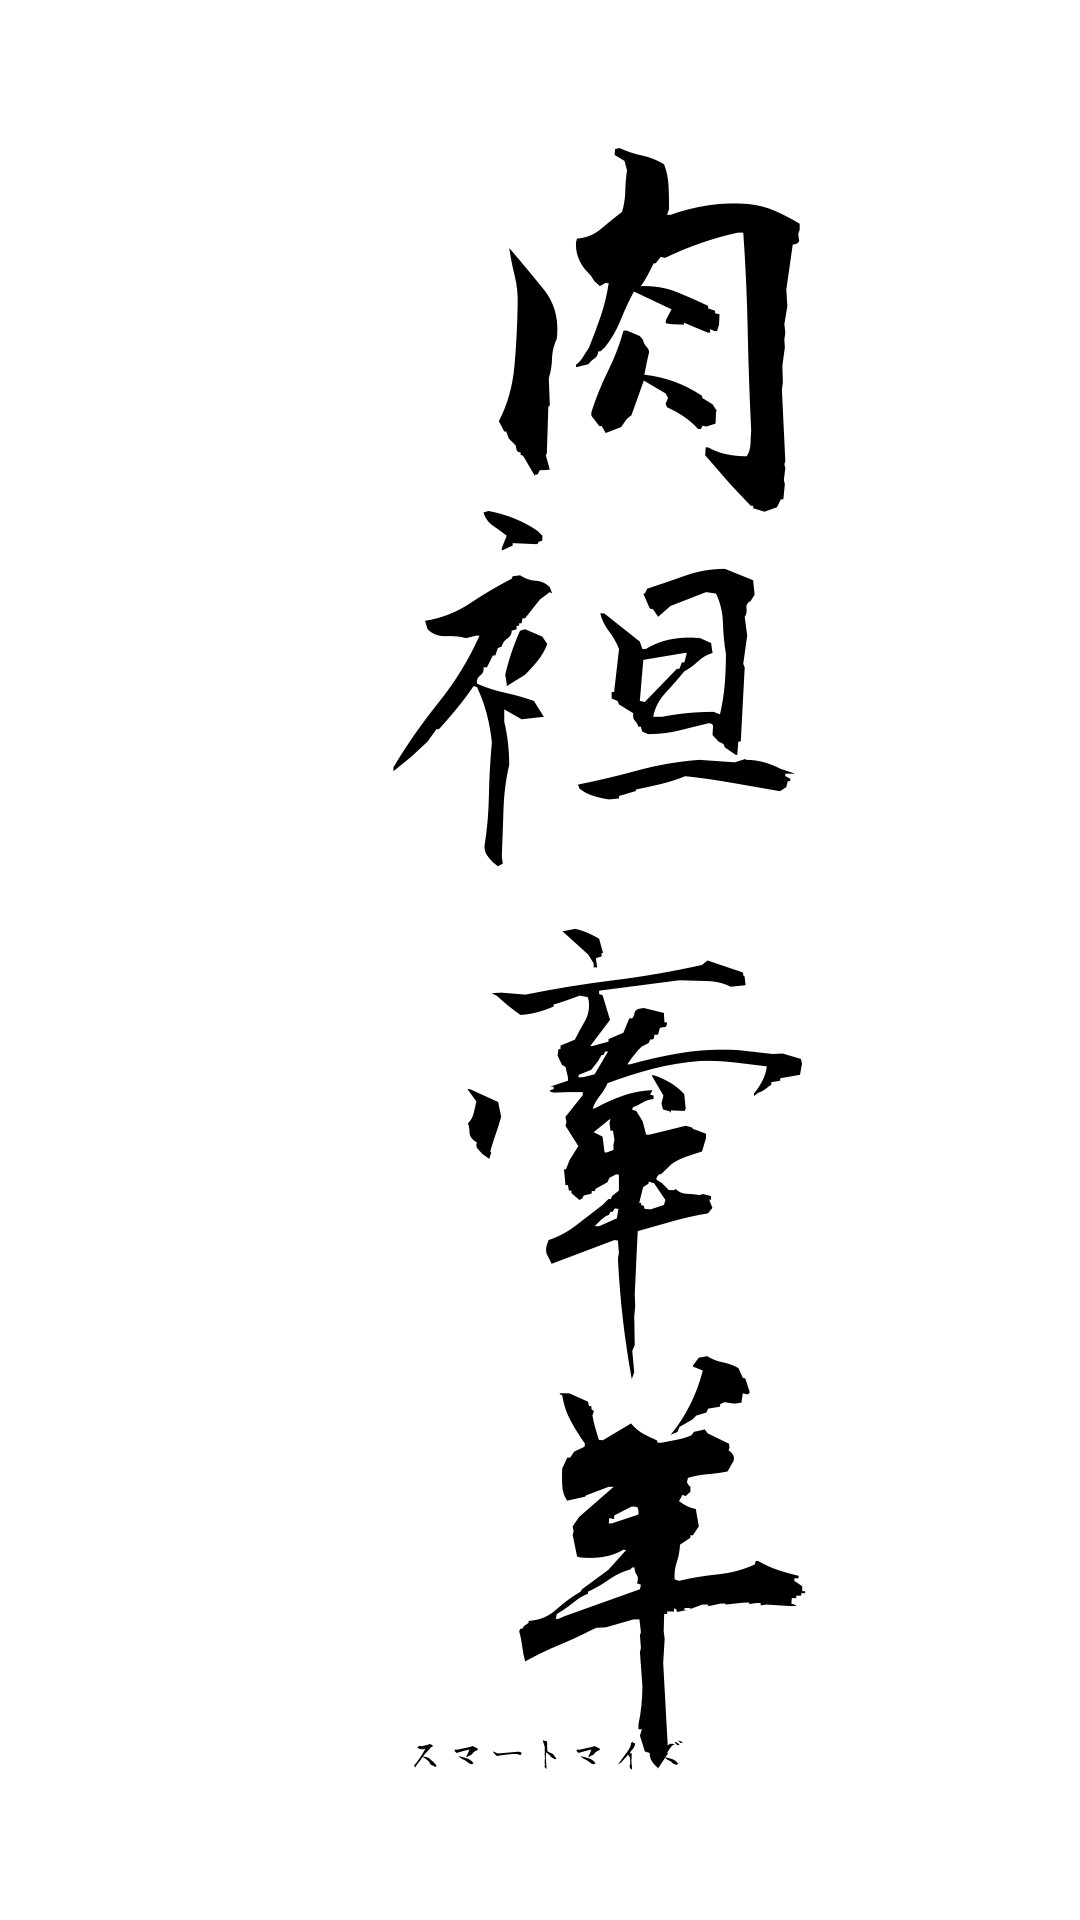 肉袒牽羊
スマートマイズ